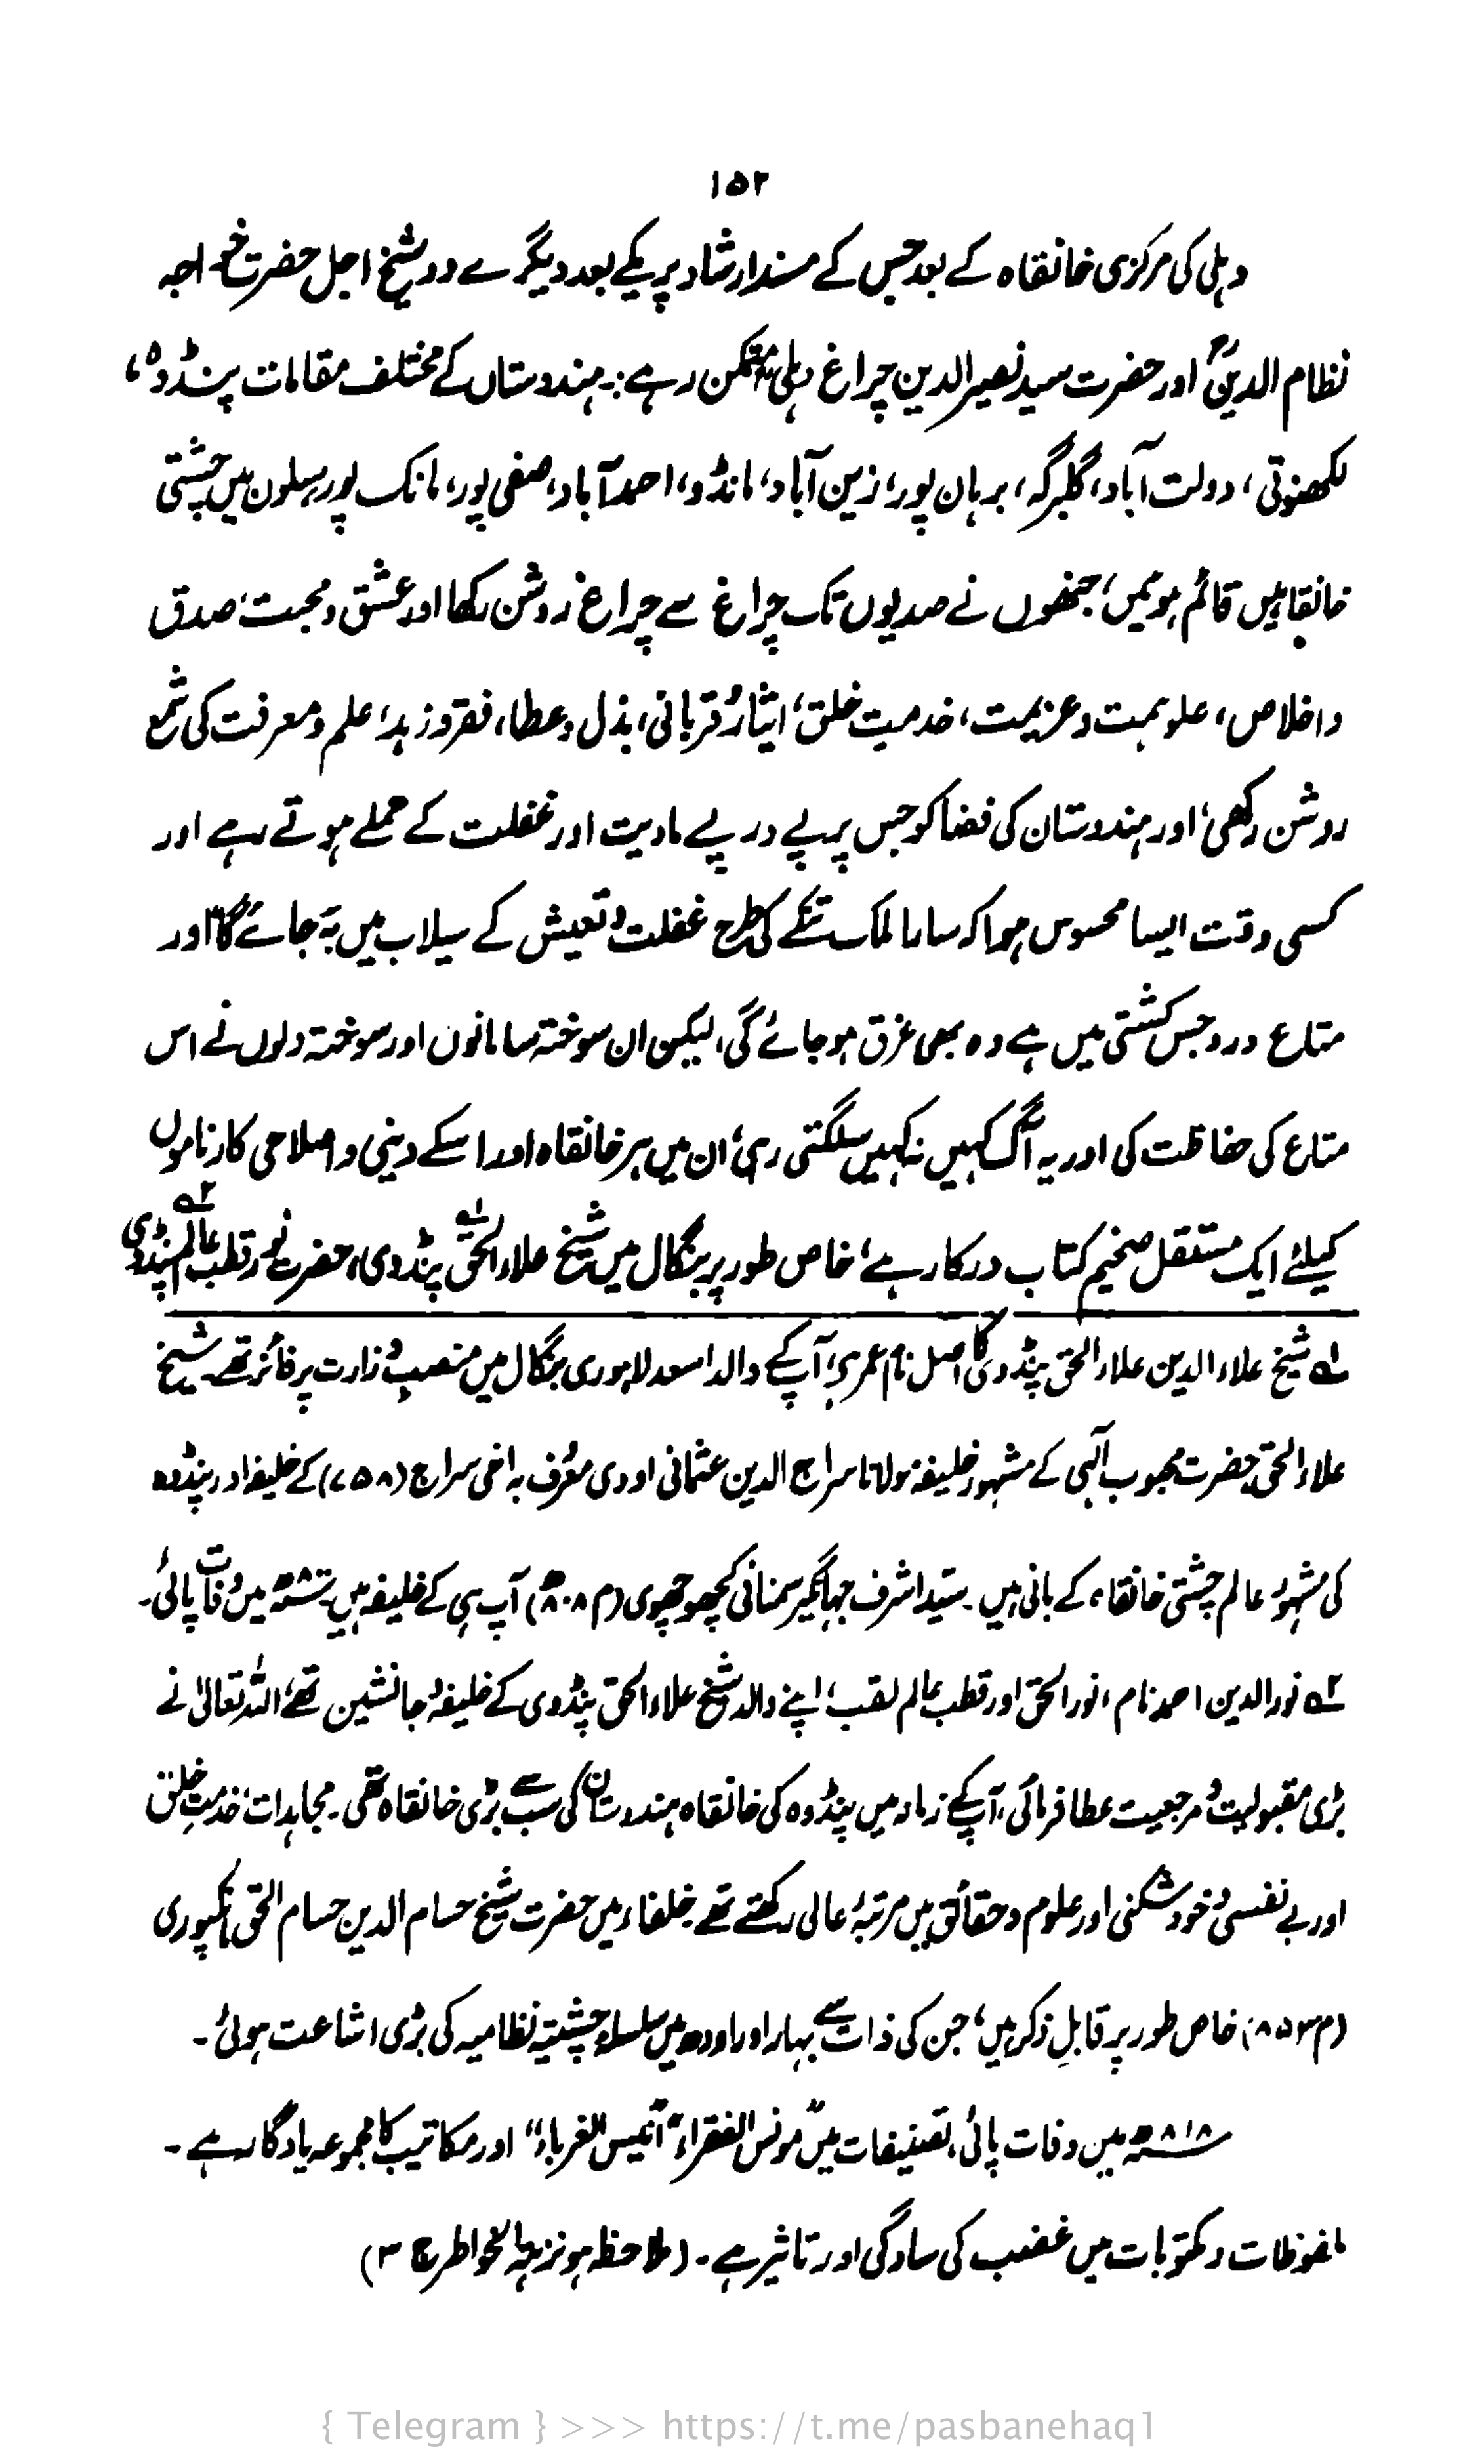 ۱۵۲
دہلی کی مرکزی خانقاہ کے بعد جس کے مسند ارشاد پر یکے بعد دیگرے دو شیخ اجل حضرت خواجہ
نظام الدینؒ اور حضرت سید نصیر الدین چراغ دہلیؒ متمکن رہے :۔ ہندوستاں کے مختلف مقامات پنڈوہ،
لکھنوتی، دولت آباد، گلبرگہ، برہان پور، زین آباد، مانڈو، احمد آباد، صفی پور، مانک پور، سلون میں چشتی
خانقاہیں قائم ہوئیں، جنھوں نے صدیوں تک چراغ سے چراغ روشن رکھا اور عشق و محبت، صدق
و اخلاص، علو ہمت و عزیمت، خدمت خلق، ایثار و قربانی، بذل و عطا، فقر و زہد، علم و معرفت کی شمع
روشن رکھی، اور ہندوستان کی فضا کو جس پر پے در پے مادیت اور غفلت کے حملے ہوتے رہے اور
کسی وقت ایسا محسوس ہوا کہ سارا ملک تنکے کی طرح غفلت و تعیش کے سیلاب میں بہ جائے گا اور
متاع درد جس کشتی میں ہے وہ بھی غرق ہو جائے گی، لیکن ان سوختہ سامانوں اور سوختہ دلوں نے اس
متاع کی حفاظت کی اور یہ آگ کہیں نہ کہیں سلگتی رہی، ان میں ہر خانقاہ اور اسکے دینی و اصلاحی کارناموں
کیلئے ایک مستقل ضخیم کتاب درکار ہے، خاص طور پر بنگال میں شیخ علاء الحق پنڈویؒ۱، حضرت نور قطب عالم پنڈوی۲
۱؎ شیخ علاء الدین علاء الحق پنڈوی کا اصل نام عمر ہے، آپ کے والد اسعد لاہوری بنگال میں منصب وزارت پر فائز تھے۔ شیخ
علاء الحق حضرت محبوب الٰہی کے مشہور خلیفہ مولانا سراج الدین عثمانی اودی معروف بہ اخی سراج (۷۵۸) کے خلیفہ اور پنڈوہ
کی مشہور عالم چشتی خانقاہ کے بانی ہیں۔ سید اشرف جہانگیر سمنانی کچھوچھوی (م ۸۰۸ھ) آپ ہی کے خلیفہ ہیں۔ میں وفات پائی۔
۲؎ نور الدین احمد نام، نور الحق اور قطب عالم لقب، اپنے والد شیخ علاء الحق پنڈوی کے خلیفہ و جانشین تھے، اللہ تعالیٰ نے
بڑی مقبولیت و مرجعیت عطا فرمائی، آپ کے زمانہ میں پنڈوہ کی خانقاہ ہندوستان کی سب سے بڑی خانقاہ تھی۔ مجاہدات، خدمتِ خلق
اور بے نفسی و خود شکنی اور علوم و حقائق میں مرتبۂ عالی رکھتے تھے۔ خلفاء میں حضرت شیخ حسام الدین حسام الحق مانکپوری
(م ۸۵۳) خاص طور پر قابلِ ذکر ہیں، جن کی ذات سے بہار اور اودھ میں سلسلہ چشتیہ نظامیہ کی بڑی اشاعت ہوئی۔
۸۱۸ھ میں وفات پائی، تصنیفات میں "مونس الفقراء" "انیس الغرباء" اور مکاتیب کا مجموعہ یادگار ہے۔
ملفوظات و مکتوبات میں غضب کی سادگی اور تاثیر ہے۔ (ملاحظہ ہو نزہۃ الخواطر ج ۳)
{ Telegram } >>> https://t.me/pasbanehaq1